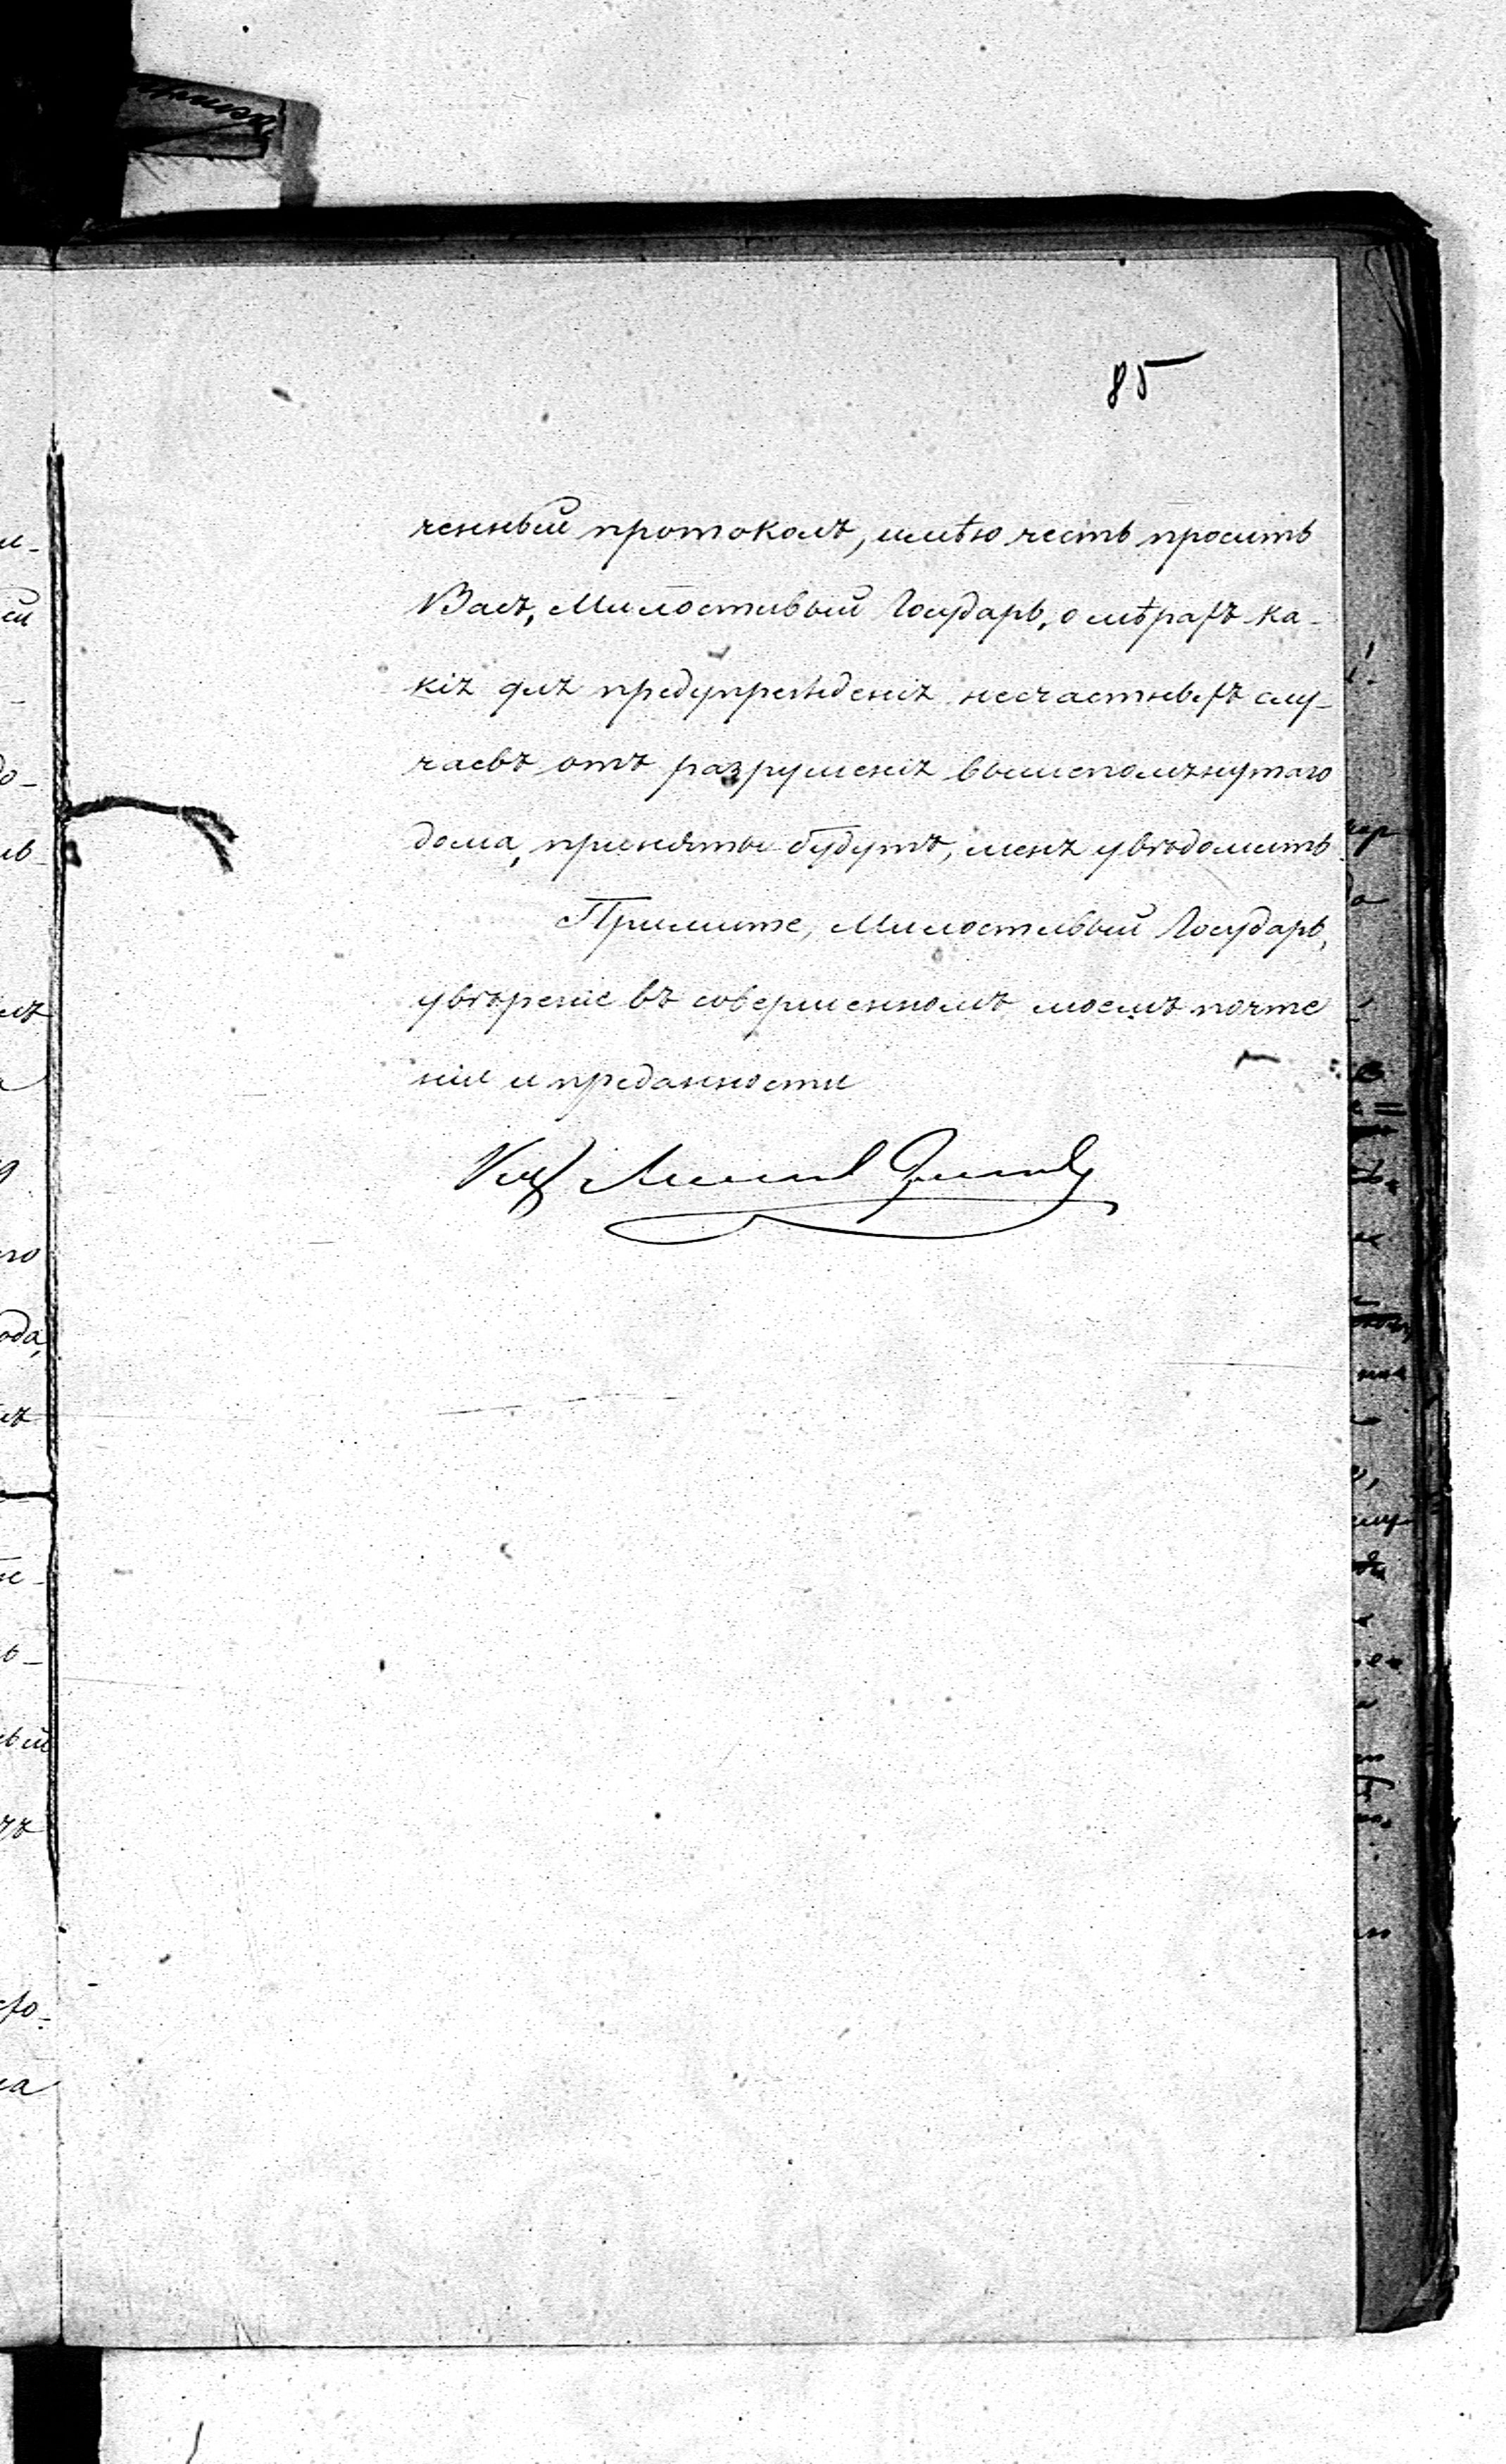 85
ченный протоколъ, имѣю честь просить
Васъ, Милостивый Государь, о мѣрахъ ка-
кія для предупрежденія несчастныхъ слу-
чаевъ отъ разрушенія вышепомянутаго
дома, приняты будутъ, меня увѣдомить
Примите, Милостивый Государь,
увѣреніе въ совершенномъ моемъ почте
ніи и преданности